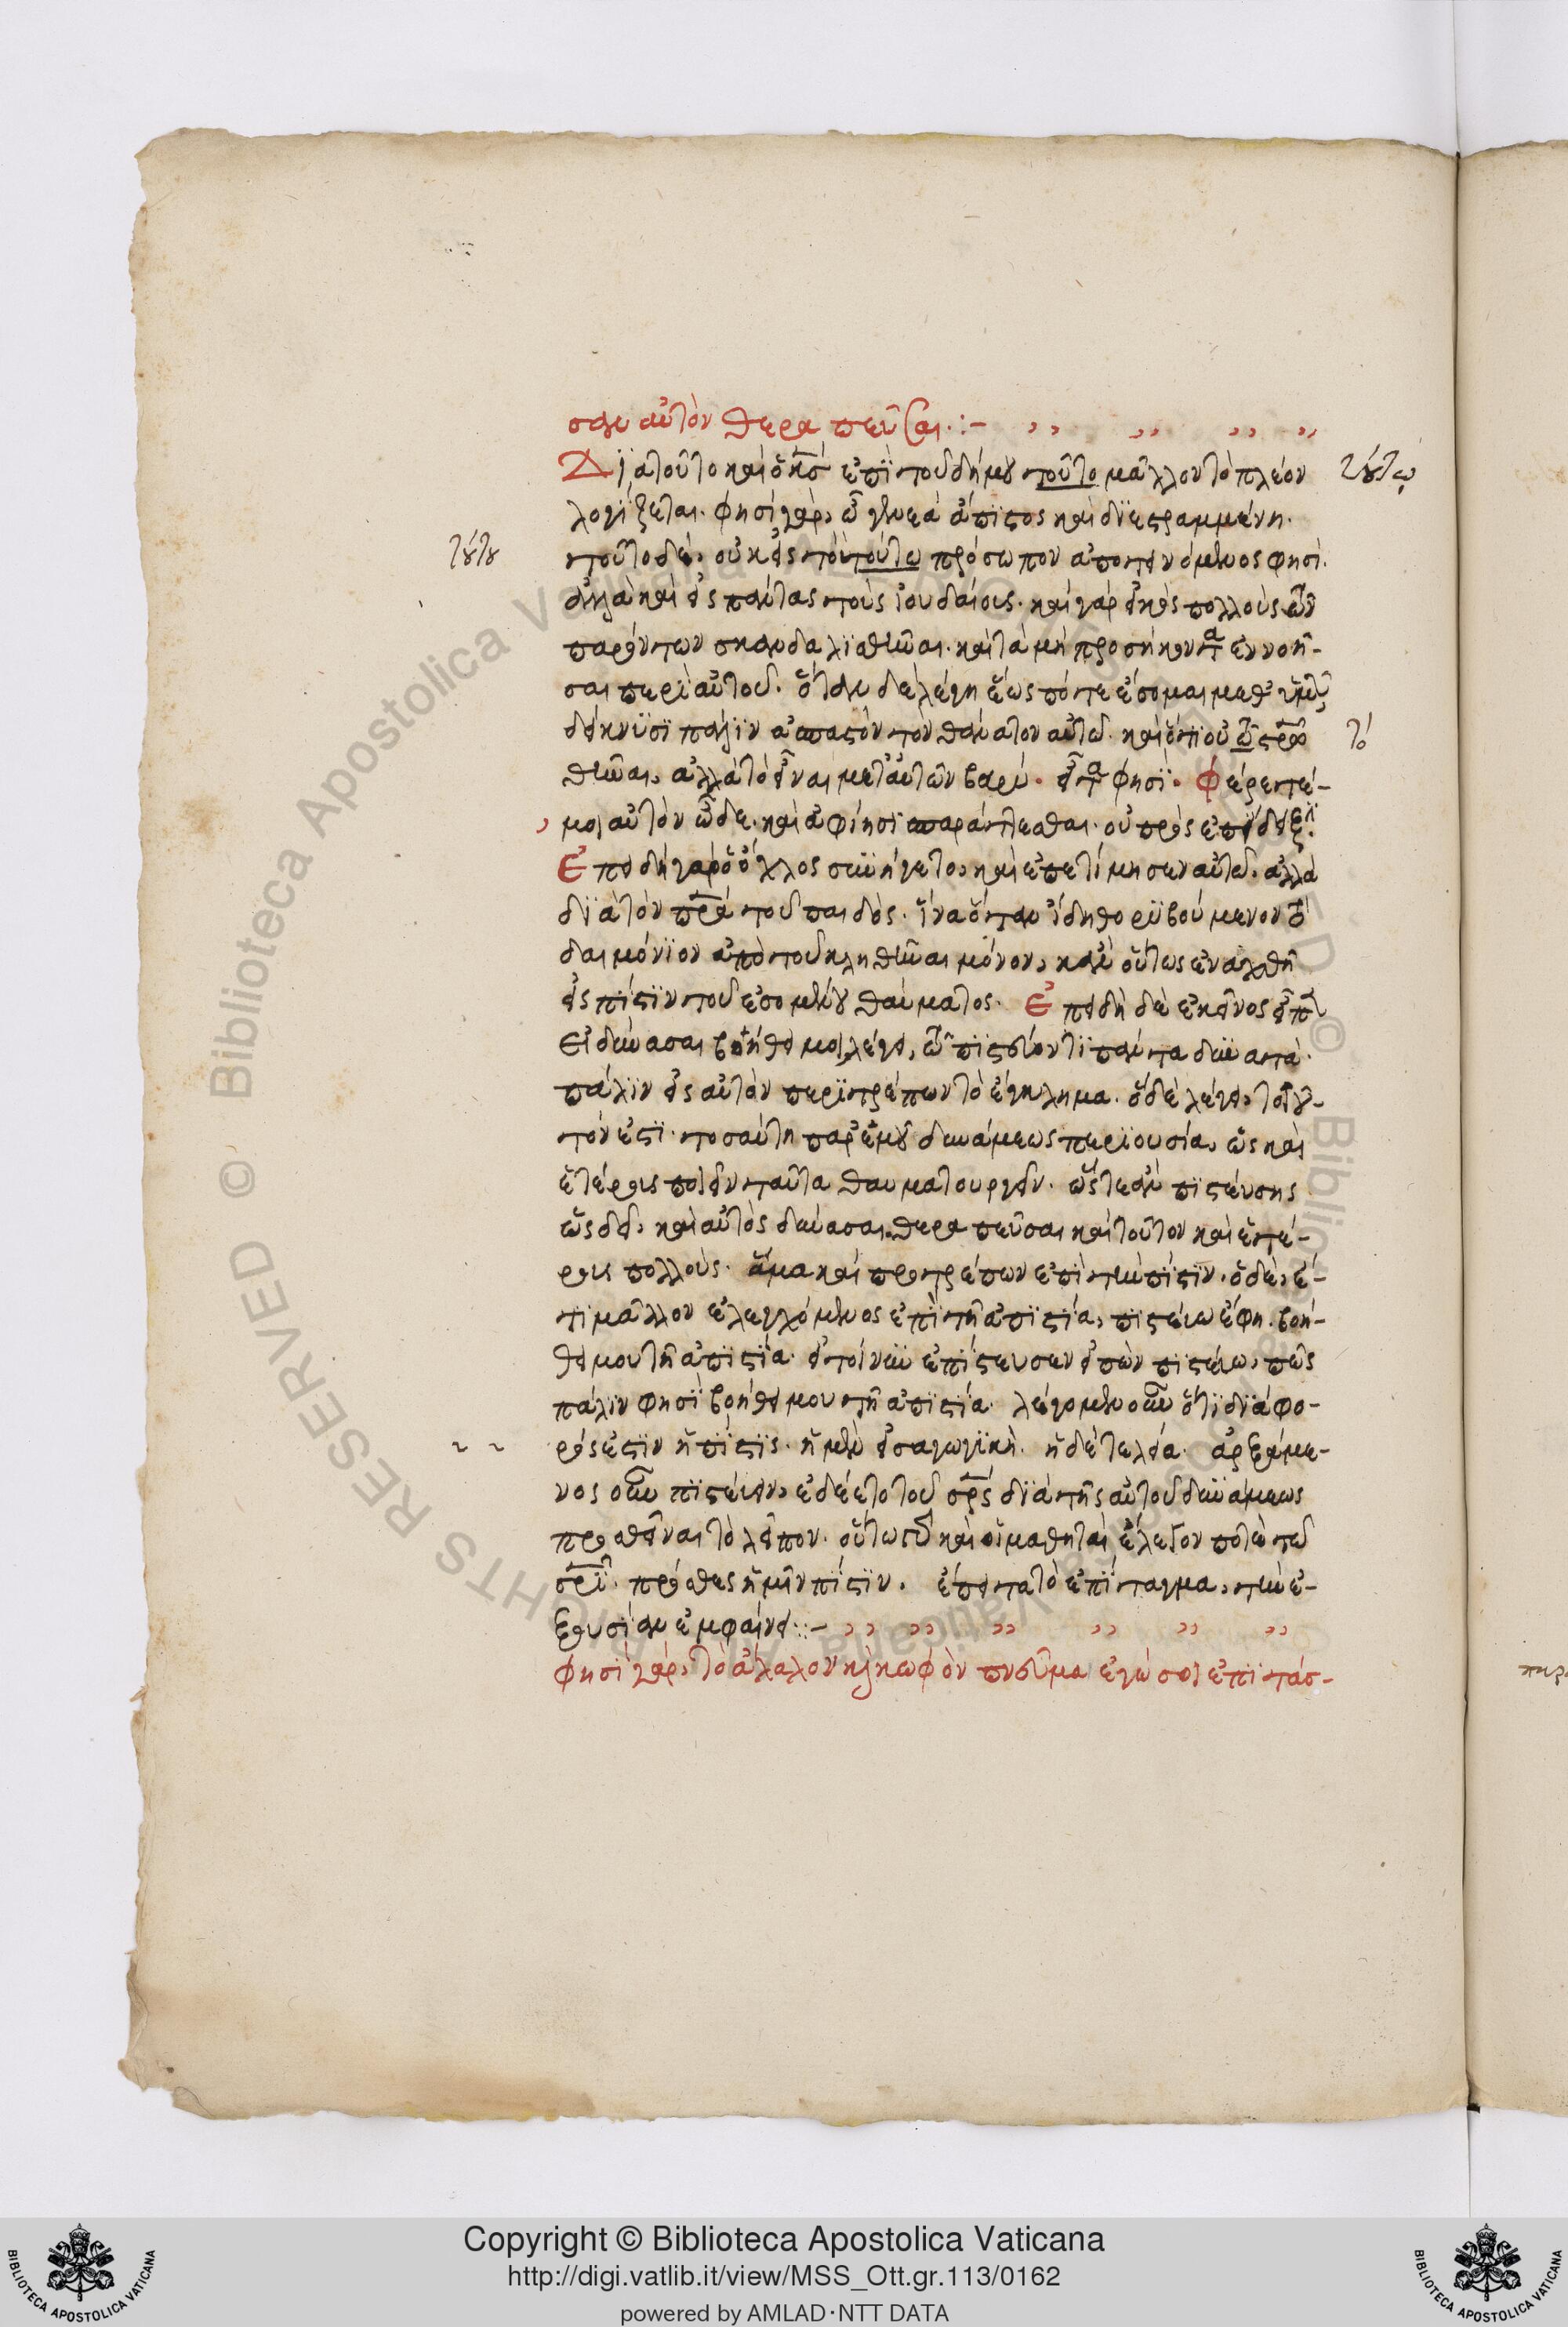 σαν αὐτὸν θεραπεῦσαι :-
Διατοῦτο καὶ ὁ κ̅ς̅ ἐπὶ τοῦ δήμου τοῦτο μᾶλλον τὸ πλέον
τούτω
λογίζεται. φησὶ γάρ, ὦ γενεὰ ἄπιστος καὶ διεστραμμένη.
τούτου
τοῦτο δὲ, οὐκ εἰς τὸ τούτω πρόσωπον ἀποτεινόμενος φησί.
ἀλλὰ καὶ εἰς πάντας τοὺς ἰουδαίους. καὶ γὰρ εἰκὸς πολλοὺς τῶν
παρόντων σκανδαλισθῆναι. καὶ τὰ μὴ προσήκοντα ἐννοῆ-
σαι περὶ αὐτοῦ. ὅταν δὲ λέγη ἕως πότε ἔσομαι μεθ' ὑμῶν
δείκνυσι πάλιν ἀσπαστὸν τὸν θάνατον αὐτῶ. καὶ ὅτι οὐ
τό
θῆναι, ἀλλὰ τὸ εἶναι μετ' αὐτῶν βαρύ. εἶτα φησί. Φέρετέ-
μοι αὐτὸν ὧδε. καὶ ἀφίησι σπαράττεσθαι. οὐ πρὸς ἐπίδειξιν.
Ἐπειδὴ γὰρ ὁ ὄχλος συνήγετο, καὶ ἐπετίμησεν αὐτῶ. ἀλλὰ
διὰ τὸν π̅ρ̅α̅ τοῦ παιδός. ἵνα ὅταν ἴδη θορυβούμενον τὸ
δαιμόνιον ἀπὸ τοῦ κληθῆναι μόνον, κἂν οὕτως ἐναχθῆ
εἰς πίστιν τοῦ ἐσομένου θαύματος. Ἐπειδὴ δὲ ἐκεῖνος εἶπεν
Εἰ δύνασαι βοήθει μοι, λέγει, τῶ πιστεύοντι πάντα δυνατά.
πάλιν εἰς αὐτὸν περιτρέπων τὸ ἔγκλημα. ὃ δὲ λέγει, τοιοῦ-
τόν ἐστι. τοσαύτη παρ' ἐμοῦ δυνάμεως περιουσία, ὡς καὶ
ἑτέρους ποιεῖν ταῦτα θαυματουργεῖν. ὥστε ἂν πιστεύσης
ὡς δεῖ, καὶ αὐτὸς δύνασαι θεραπεῦσαι καὶ τοῦτον καὶ ἑτέ-
ρους πολλούς. ἅμα καὶ προτρέπων ἐπὶ τὴν πίστιν. ὁ δὲ, ἔ-
τι μᾶλλον ἐλεγχόμενος ἐπὶ τῆ ἀπιστία, πιστεύω ἔφη. βοή-
θει μου τῆ ἀπιστία. εἰ τοίνυν ἐπίστευσεν εἰπὼν πιστεύω, πῶς
πάλιν φησὶ βοήθει μου τῆ ἀπιστία. λέγομεν οὖν ὅτι διάφο-
ρός ἐστιν ἡ πίστις. ἡ μὲν εἰσαγωγικὴ. ἡ δὲ τελεία. ἀρξάμε-
νος οὖν πιστεύειν, ἐδέετο τοῦ σ̅ρ̅ς̅ διὰ τῆς αὐτοῦ δυνάμεως
προσθεῖναι τὸ λεῖπον. οὕτω καὶ οἱ μαθηταὶ ἔλεγον ποτὲ τῶ
σ̅ρ̅ι̅. πρόσθες ἡμῖν πίστιν. ἔπειτα τὸ ἐπίταγμα, τὴν ἐ-
ξουσίαν ἐμφαίνει :-
φησὶ γάρ, τὸ ἄλαλον κ̀ κωφὸν πνεῦμα ἐγώ σοι ἐπιτάσ-
Copyright © Biblioteca Apostolica Vaticana
http://digi.vatlib.it/view/MSS_Ott.gr.113/0162
powered by AMLAD·NTT DATA
BIBLIOTECA APOSTOLICA VATICANA
BIBLIOTECA APOSTOLICA VATICANA